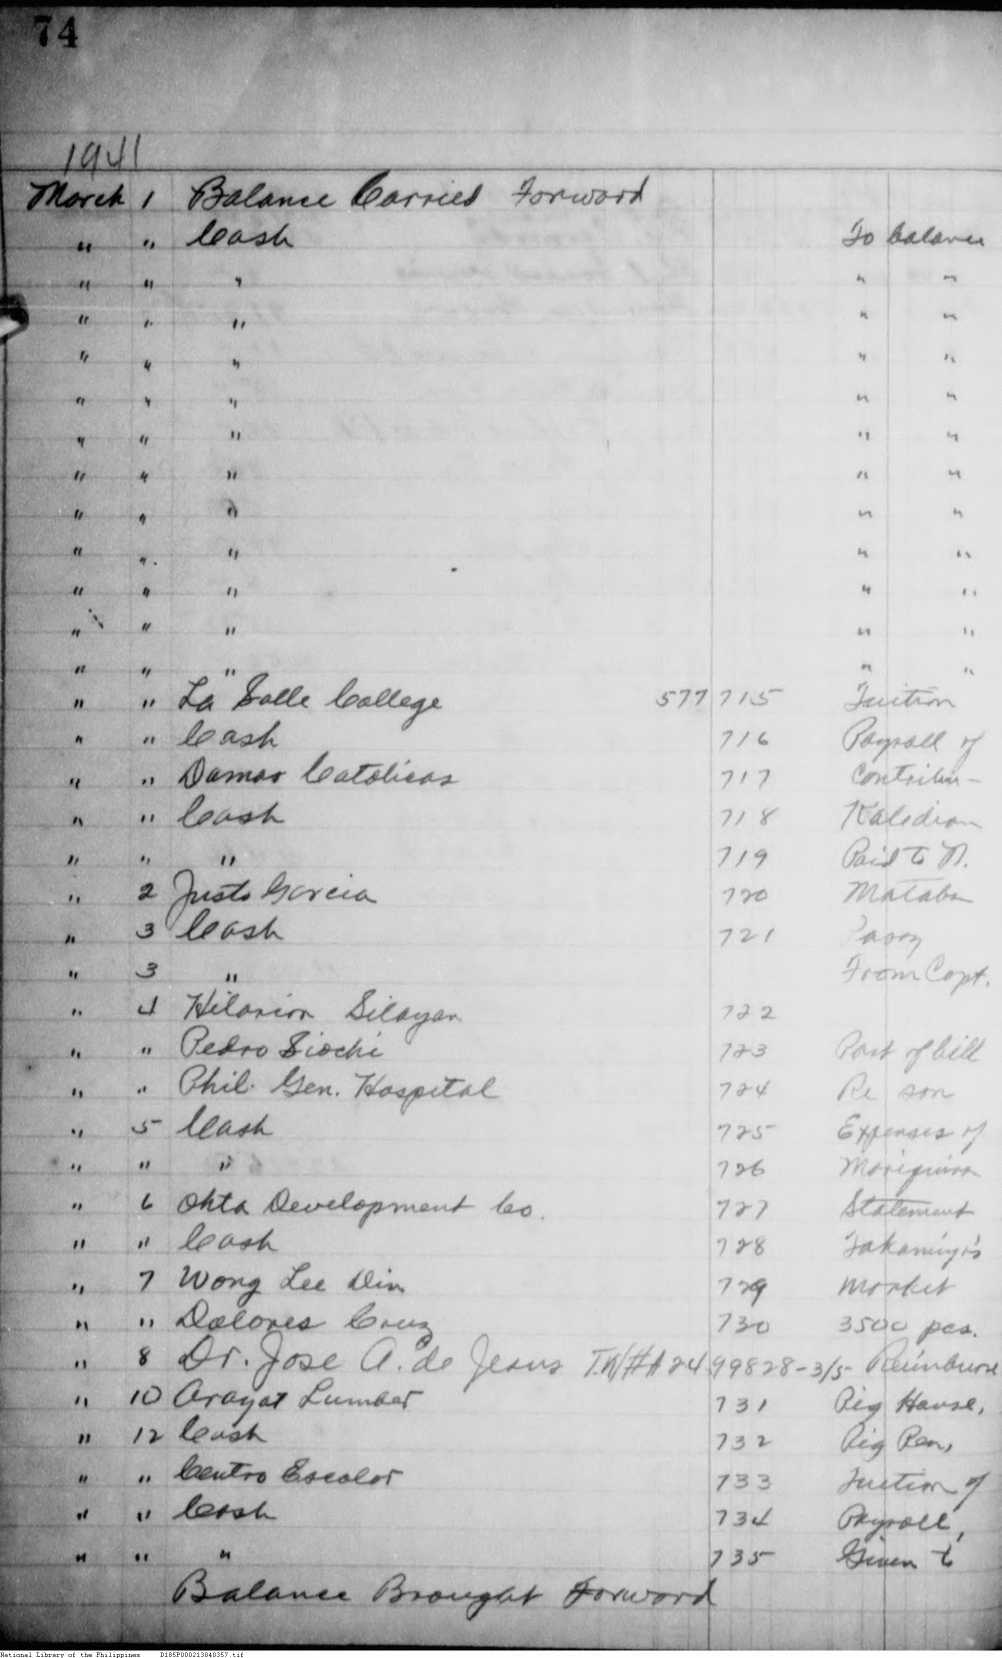 74
1941
March 1 Balance Carried Forward
" " Cash To balance
" " " " "
" " " " "
" " " " "
" " " " "
" " " " "
" " " " "
" " " " "
" " " " "
" " " " "
" " " " "
" " " " "
" " La Salle College 577 715 Tuition
" " Cash 716 Payroll of
" " Damas Catolicas 717 Contribu-
" " Cash 718
" " " 719 Paid to N.
" 2 Justo Garcia 720
" 3 Cash 721 Pasay
" 3 " From Capt.
" 4 Hilarion Silayan 722
" " Pedro Siochi 723 Part of bill
" " Phil. Gen. Hospital 724 Re son
" 5 Cash 725 Expenses of
" " " 726 Mariquina
" 6 Ohta Development Co. 727 Statement
" " Cash 728
" 7 Wong Lee Din 729 Market
" " Dolores Cruz 730 3500 pcs.
" 8 Dr. Jose A. de Jesus T.W/#A2499828-3/5- Reimburse
" 10 Arayat Lumber 731 Pig House,
" 12 Cash 732 Pig Pen,
" " Centro Escolar 733 Tuition of
" " Cash 734 Payroll,
" " " 735 Given to
Balance Brought Forward
National Library of the Philippines D185P000213840357.tif